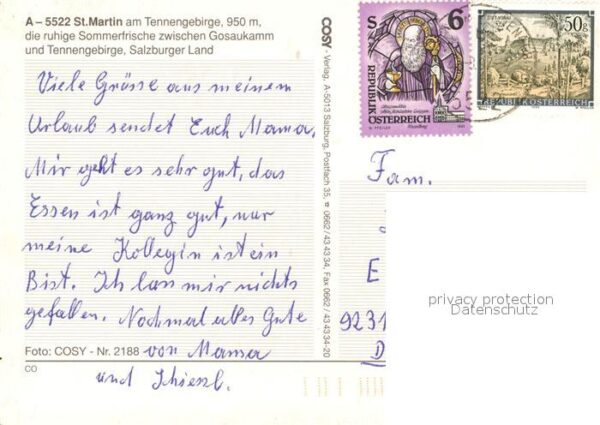 A – 5522 St.Martin am Tennengebirge, 950 m,
die ruhige Sommerfrische zwischen Gosaukamm
und Tennengebirge, Salzburger Land
Viele Grüsse aus meinem
Urlaub sendet Euch Mama.
Mir geht es sehr gut, das
Essen ist ganz gut, nur
meine Kollegin ist ein
Bist. Ich las mir nichts
gefallen. Nochmal alles Gute
von Mama
und
Foto: COSY - Nr. 2188
CO
COSY - Verlag, A-5013 Salzburg, Postfach 35, ☎ 0662/43 43 34, Fax 0662/43 43 34-20
S 6
REPUBLIK
ÖSTERREICH
50 g
REPUBLIK ÖSTERREICH
Fam.
E
9231
D
privacy protection
Datenschutz